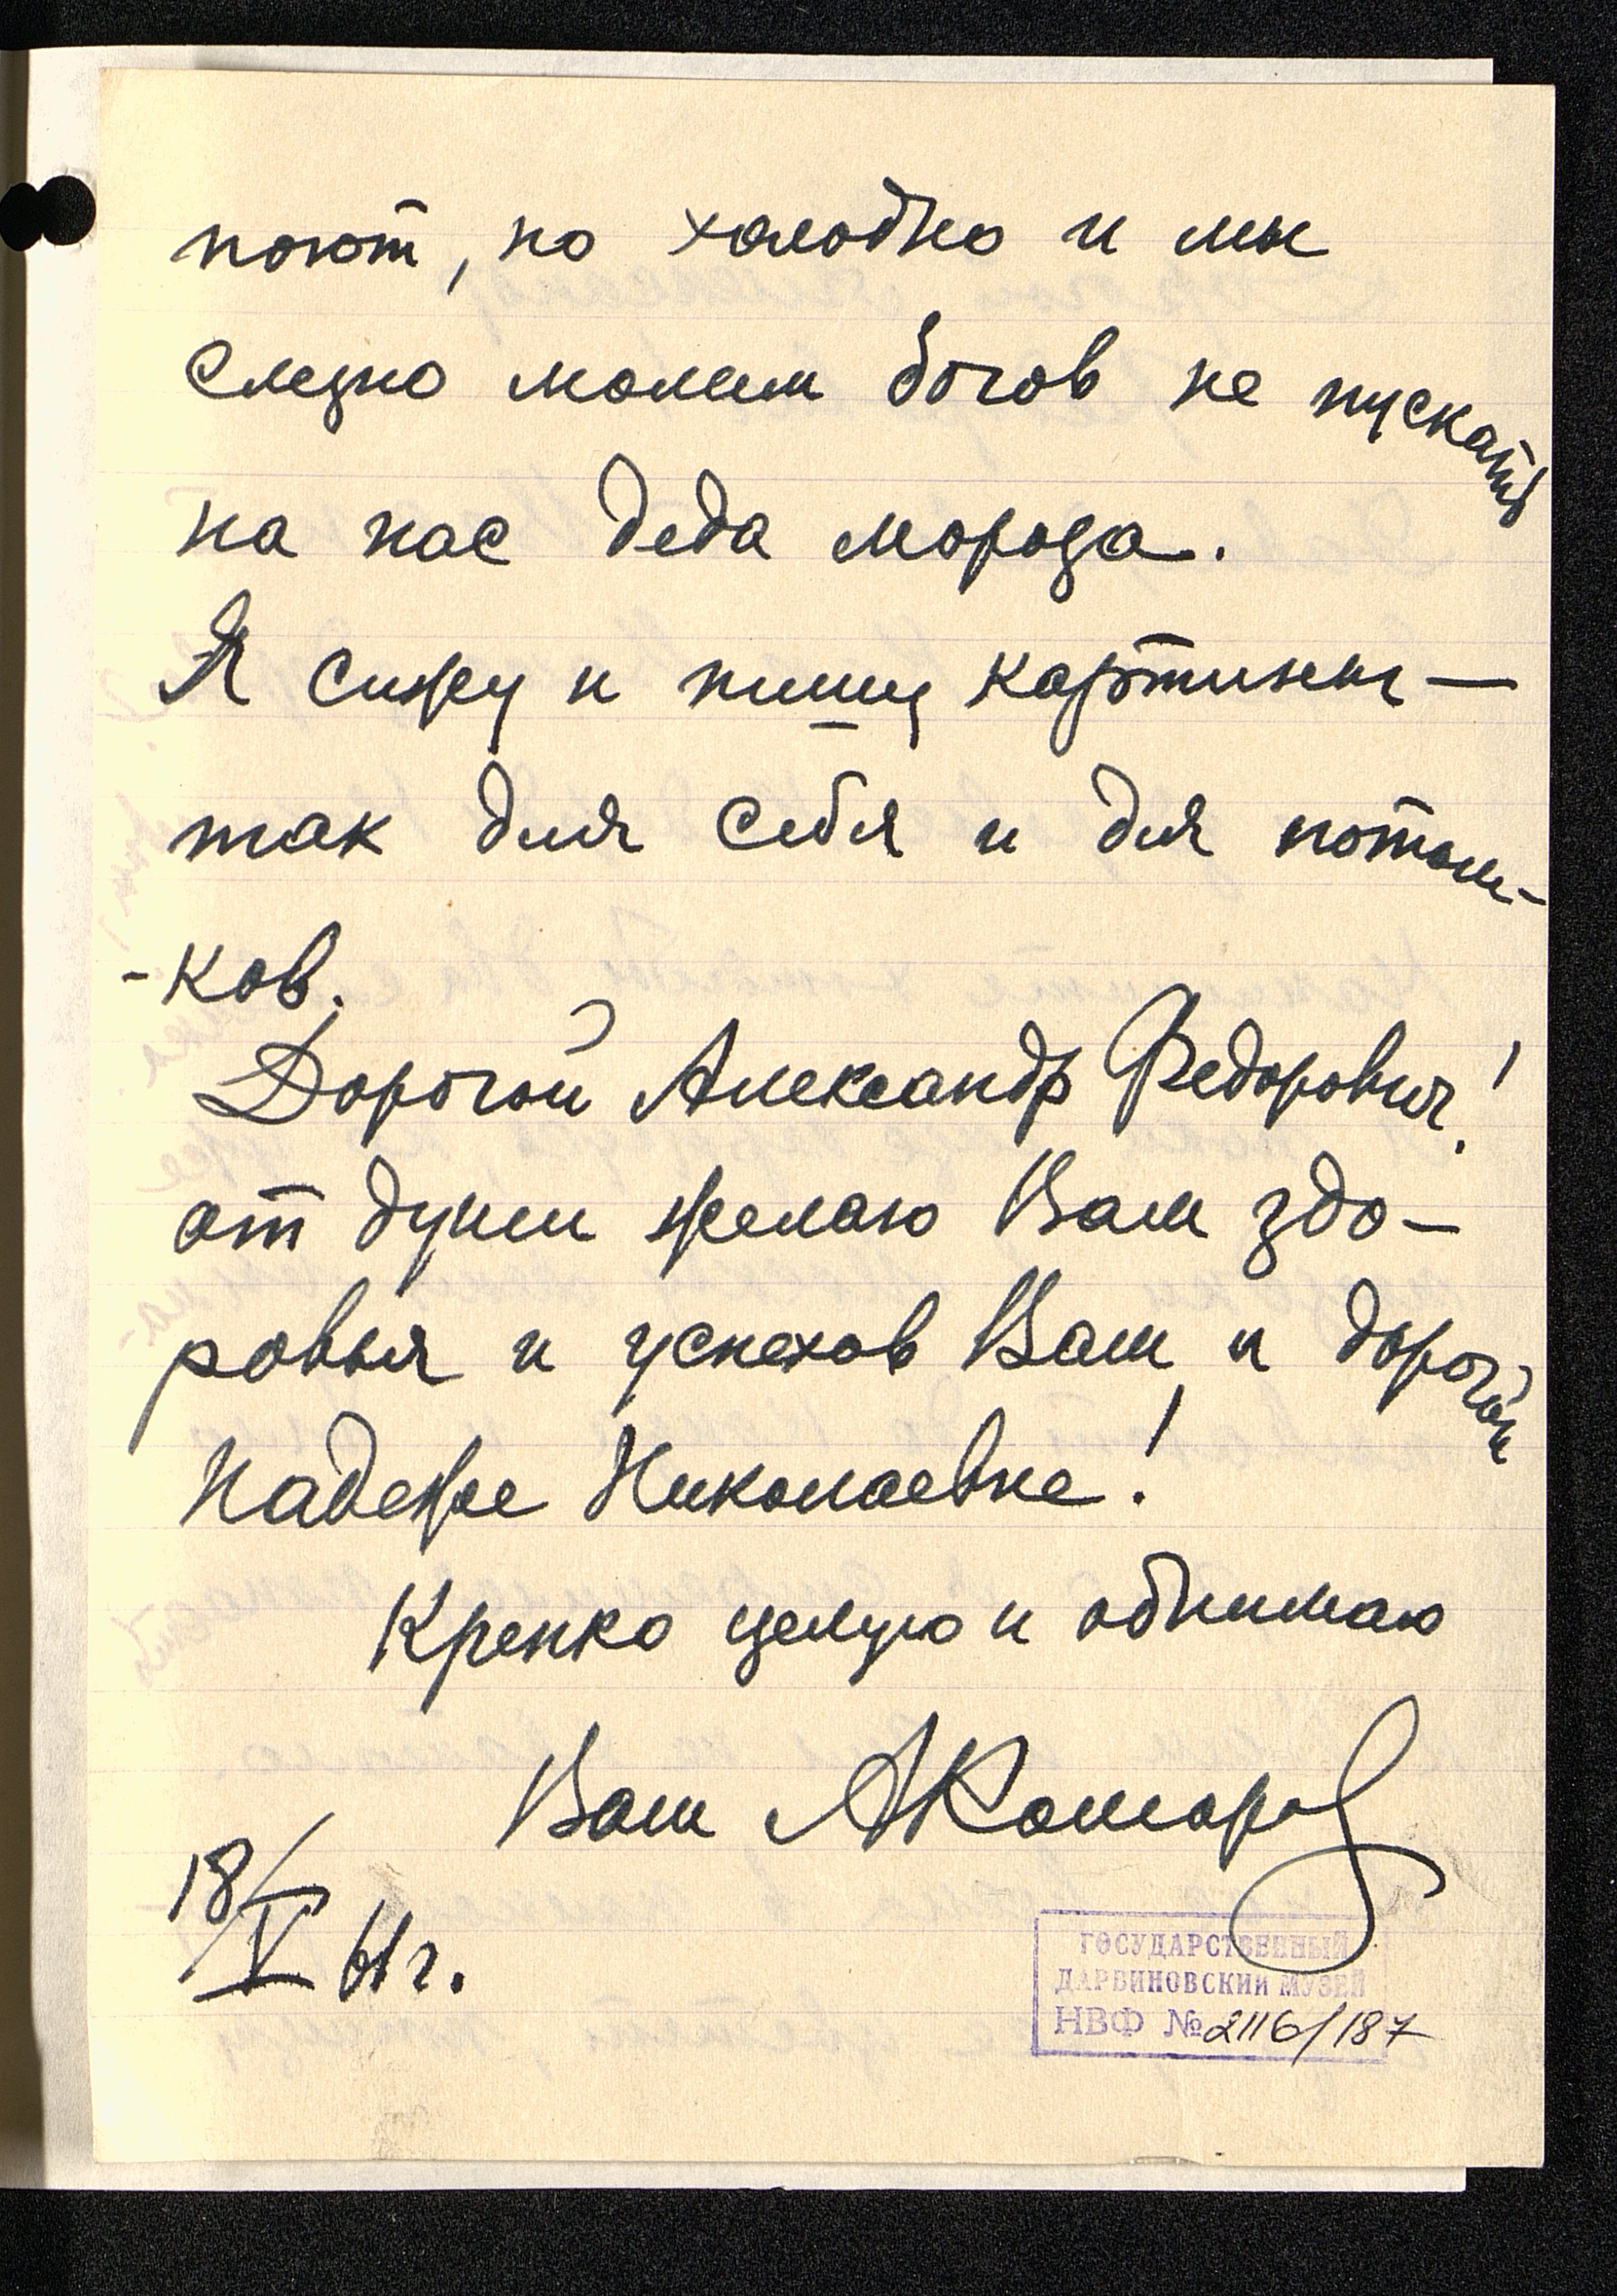 поют, но холодно и мы
слезно молим богов не пускать
на нас деда мороза.
Я сижу и пишу картины —
так для себя и для потом-
-ков.
Дорогой Александр Федорович!
от души желаю Вам здо-
ровья и успехов Вам и дорогой
Надежде Николаевне!
Крепко целую и обнимаю
Ваш АКомаров
18/V 61 г.
ГОСУДАРСТВЕННЫЙ
ДАРВИНОВСКИЙ МУЗЕЙ
НВФ № 2116/187